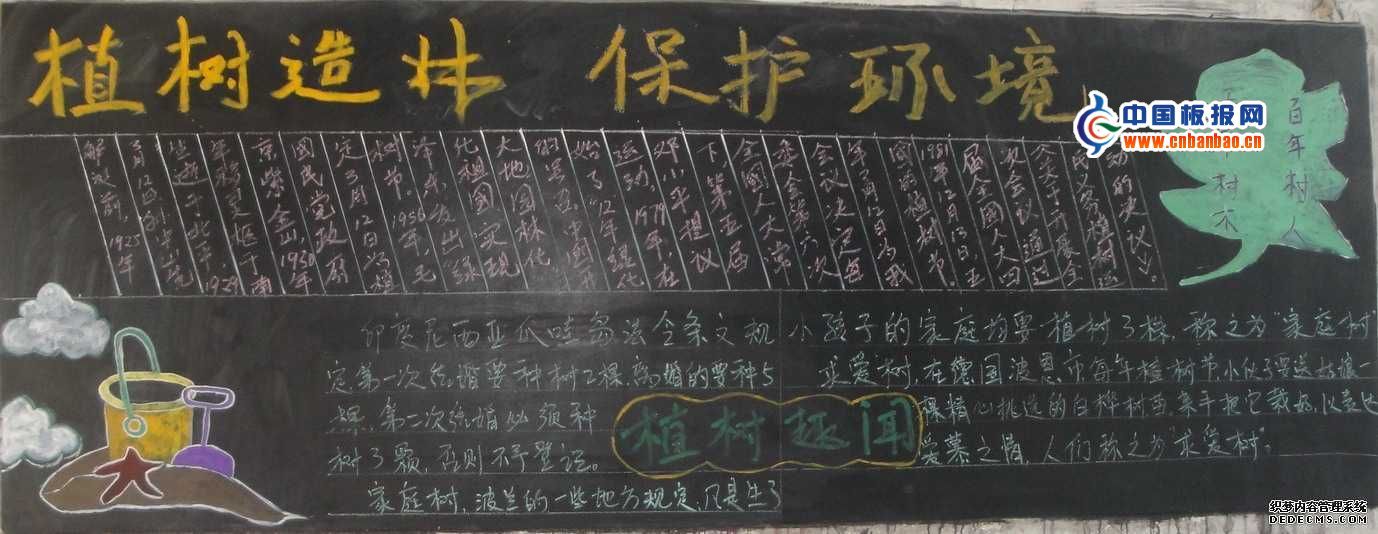 植树造林 保护环境
解放前,1925年
3月12日孙中山先
生逝于北平,1929
年移灵柩于南
京紫金山,1930年
国民党政府
定3月12日为植
树节。1956年,毛
泽东发出绿
化祖国实现
大地园林化
的号召,中国开
始了“12年绿化
运动,1979年,在
邓小平提议
下,第五届
全国人大常
委会第六次
会议决定每
年3月12日为我
国的植树节。
1981年12月13日,五
届全国人大四
次会议通过
《关于开展全
民义务植树运
动的决议》。
百年树人
年树木
中国板报网
www.cnbanbao.cn
印度尼西亚爪哇岛法令条文规
定第一次结婚要种树2棵,离婚的要种5
棵,第二次结婚必须种
树3颗,否则不予登记。
家庭树,波兰的一些地方规定,凡是生了
小孩子的家庭为要植树3棵,称之为“家庭树”
求爱树,在德国波恩市,每年植树节,小伙子要送姑娘一
棵精心挑选的白桦树苗,亲手把它栽好,以表达
爱慕之情,人们称之为“求爱树”。
植树趣闻
织梦内容管理系统
DEDECMS.COM